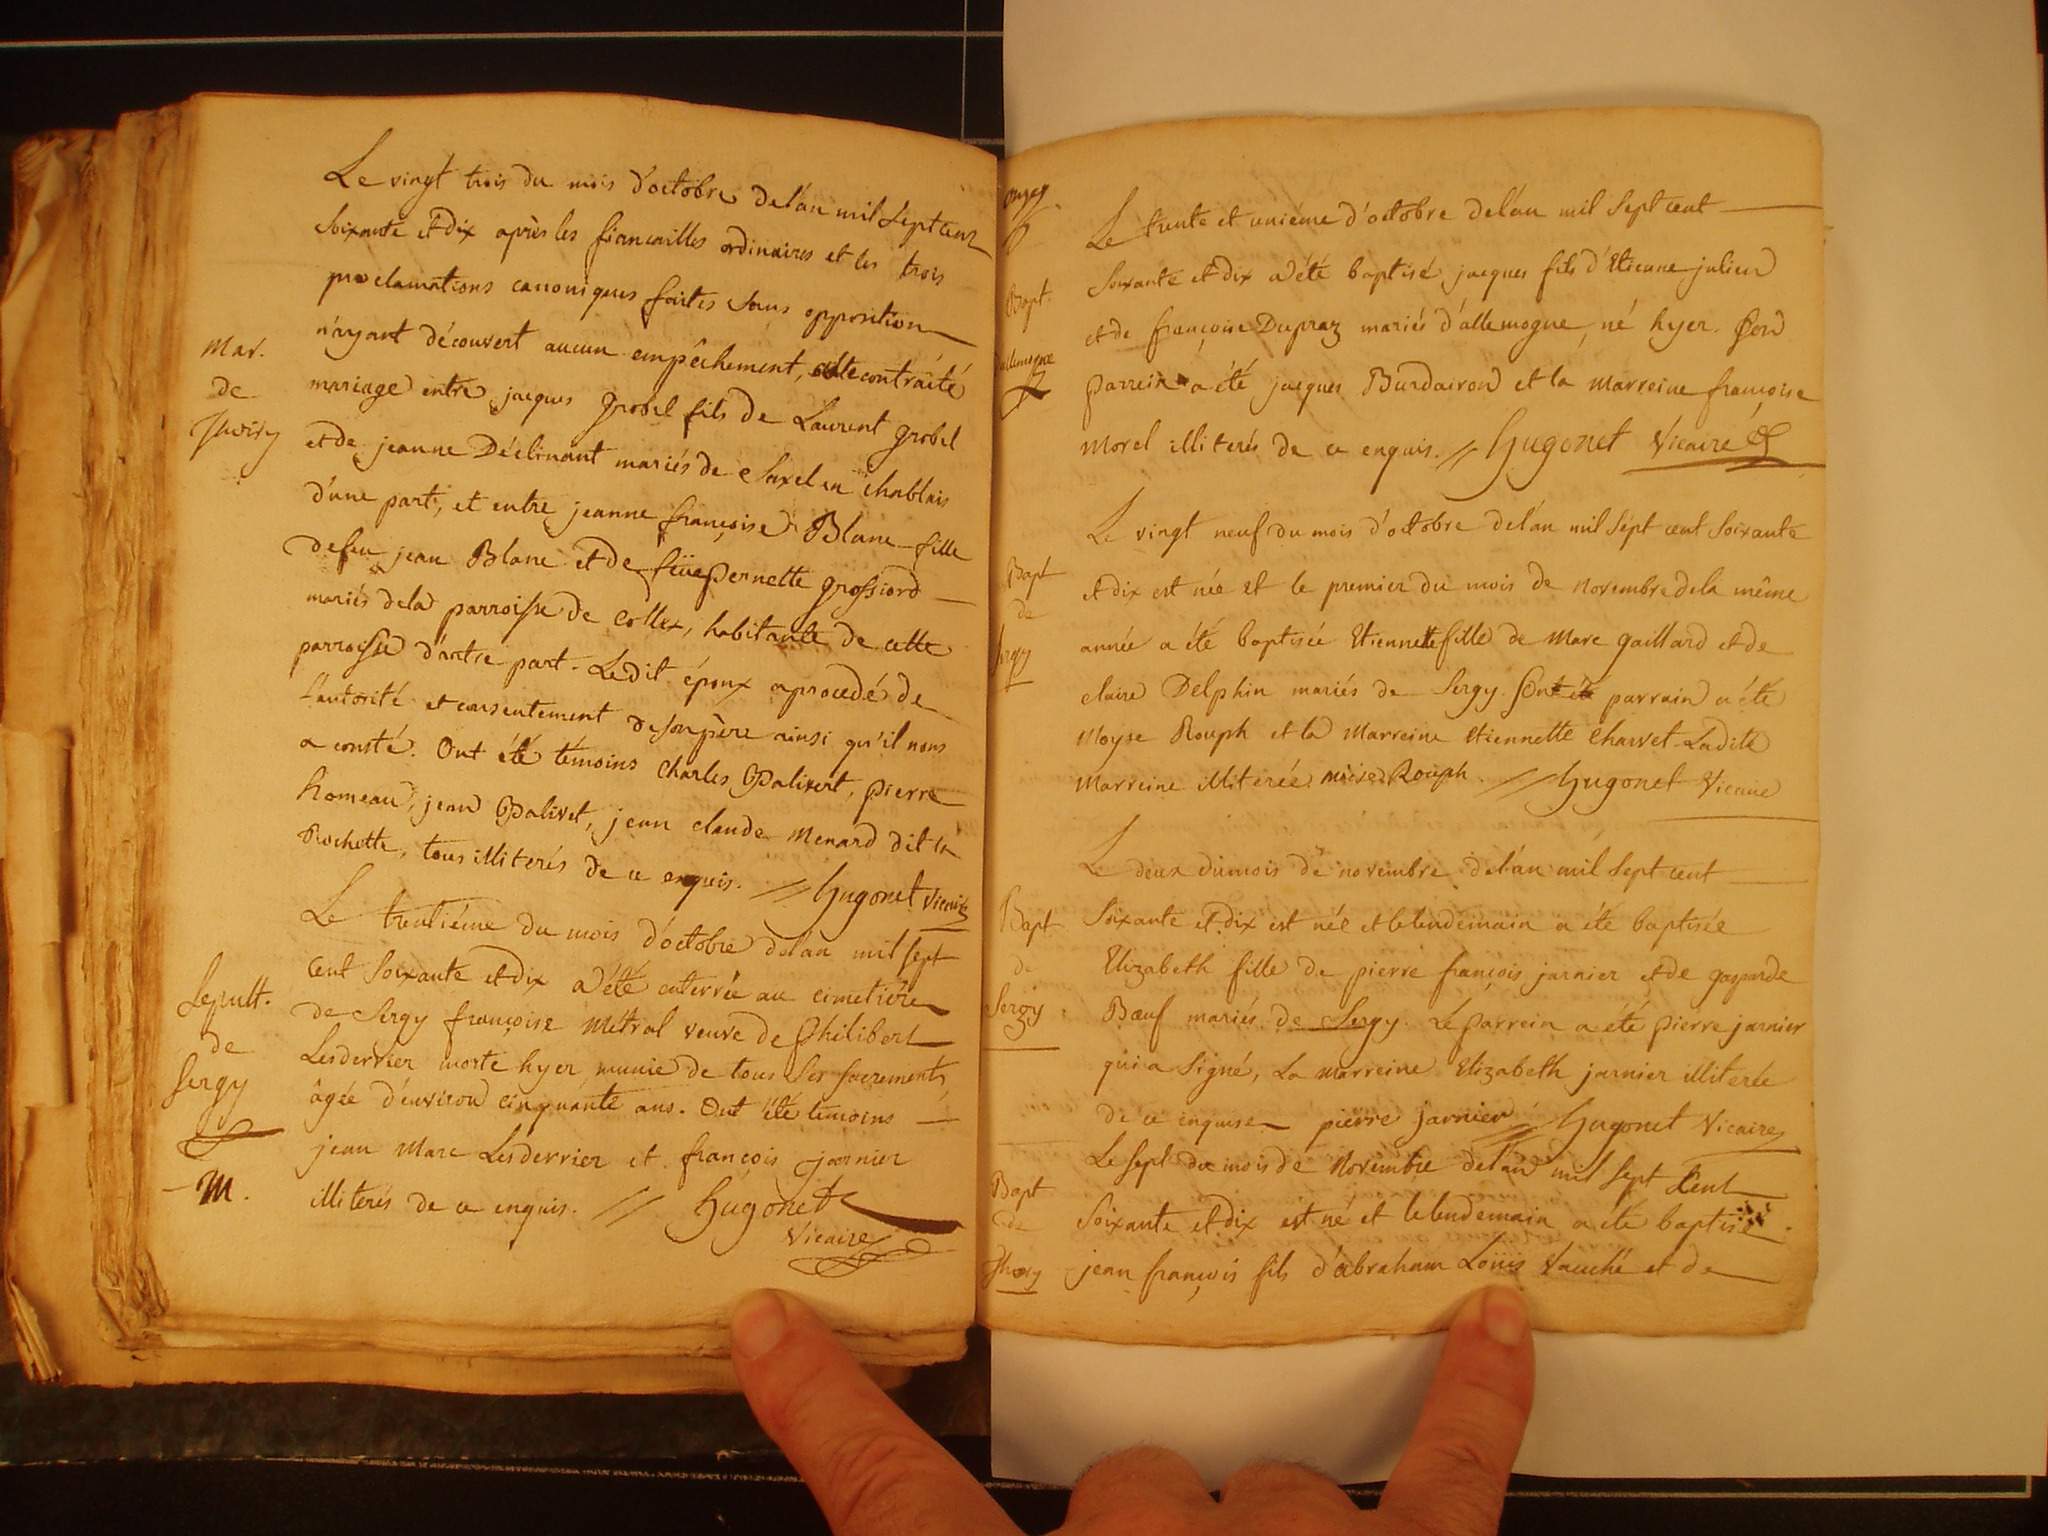 Le vingt trois du mois d'octobre de l'an mil Sept cent
Soixante et dix après les fiancailles ordinaires et les trois
proclamations canoniques faites Sans opposition
n'ayant découvert aucun empêchement, a été contraité
Mar.
de
mariage entre jacques grobel fils de Laurent grobel
et de jeanne Déclinant mariés de Saxel en chablais
d'une part, et entre jeanne françoise Blanc fille
de feu jean Blanc et de füe pernette grossiord
mariés de la parroisse de Collex, habitante de cette
parroisse d'autre part. Ledit époux a procedé de
l'autorité et consentement de son père ainsi qu'il nous
a consté. Ont été témoins Charles Palivert, pierre
Romeau, jean Palivet, jean claude Menard dit la
Rochette, tous illiterés de ce enquis. // Hugonet Vicaire
Le trentiéme du mois d'octobre de l'an mil sept
Cent Soixante et dix a été enterrée au cimetière
Sepult.
de
Sergy
de Sergy françoise Métral veuve de Philibert
Lesderrier morte hyer munie de tous Ses sacrements
âgée d'environ cinquante ans. Ont été temoins
jean Marc Lesderrier et françois jarnier
M.
illiterés de ce enquis. // Hugonet
Vicaire
Le trente et uniéme d'octobre de l'an mil Sept cent
Soixante et dix a été baptisé jacques fils d'Etienne julien
Bapt.
d'allemogne
et de françoise Dupraz mariés d'allemogne, né hyer. Son
parrein a été jacques Burdairon et la Marreine françoise
Morel illiterés de ce enquis. // Hugonet Vicaire
Le vingt neuf du mois d'octobre de l'an mil Sept cent Soixante
Bapt
de
Sergy
et dix est née et le premier du mois de Novembre de la même
année a été baptisée Etiennette fille de Marc gaillard et de
claire Delphin mariés de Sergy. parrain a été
Moyse Rouph et la Marreine Etiennette Charvet. Ladite
Marreine illiterée. moise Rouph. // Hugonet Vicaire
Le deux du mois de novembre de l'an mil Sept cent
Bapt
de
Sergy
Soixante et dix est née et le lendemain a été baptisée
Elizabeth fille de pierre françois jarnier et de gasparde
Bœuf mariés de Sergy. Le parrein a été pierre jarnier
qui a Signé, La marreine Elizabeth jarnier illiterée
de ce enquise pierre jarnier // Hugonet Vicaire
Le Sept du mois de Novembre de l'an mil Sept Cent
Bapt
de
Thoiry
Soixante et dix est né et le lendemain a été baptisé
jean françois fils d'abraham Loüis Vauché et de